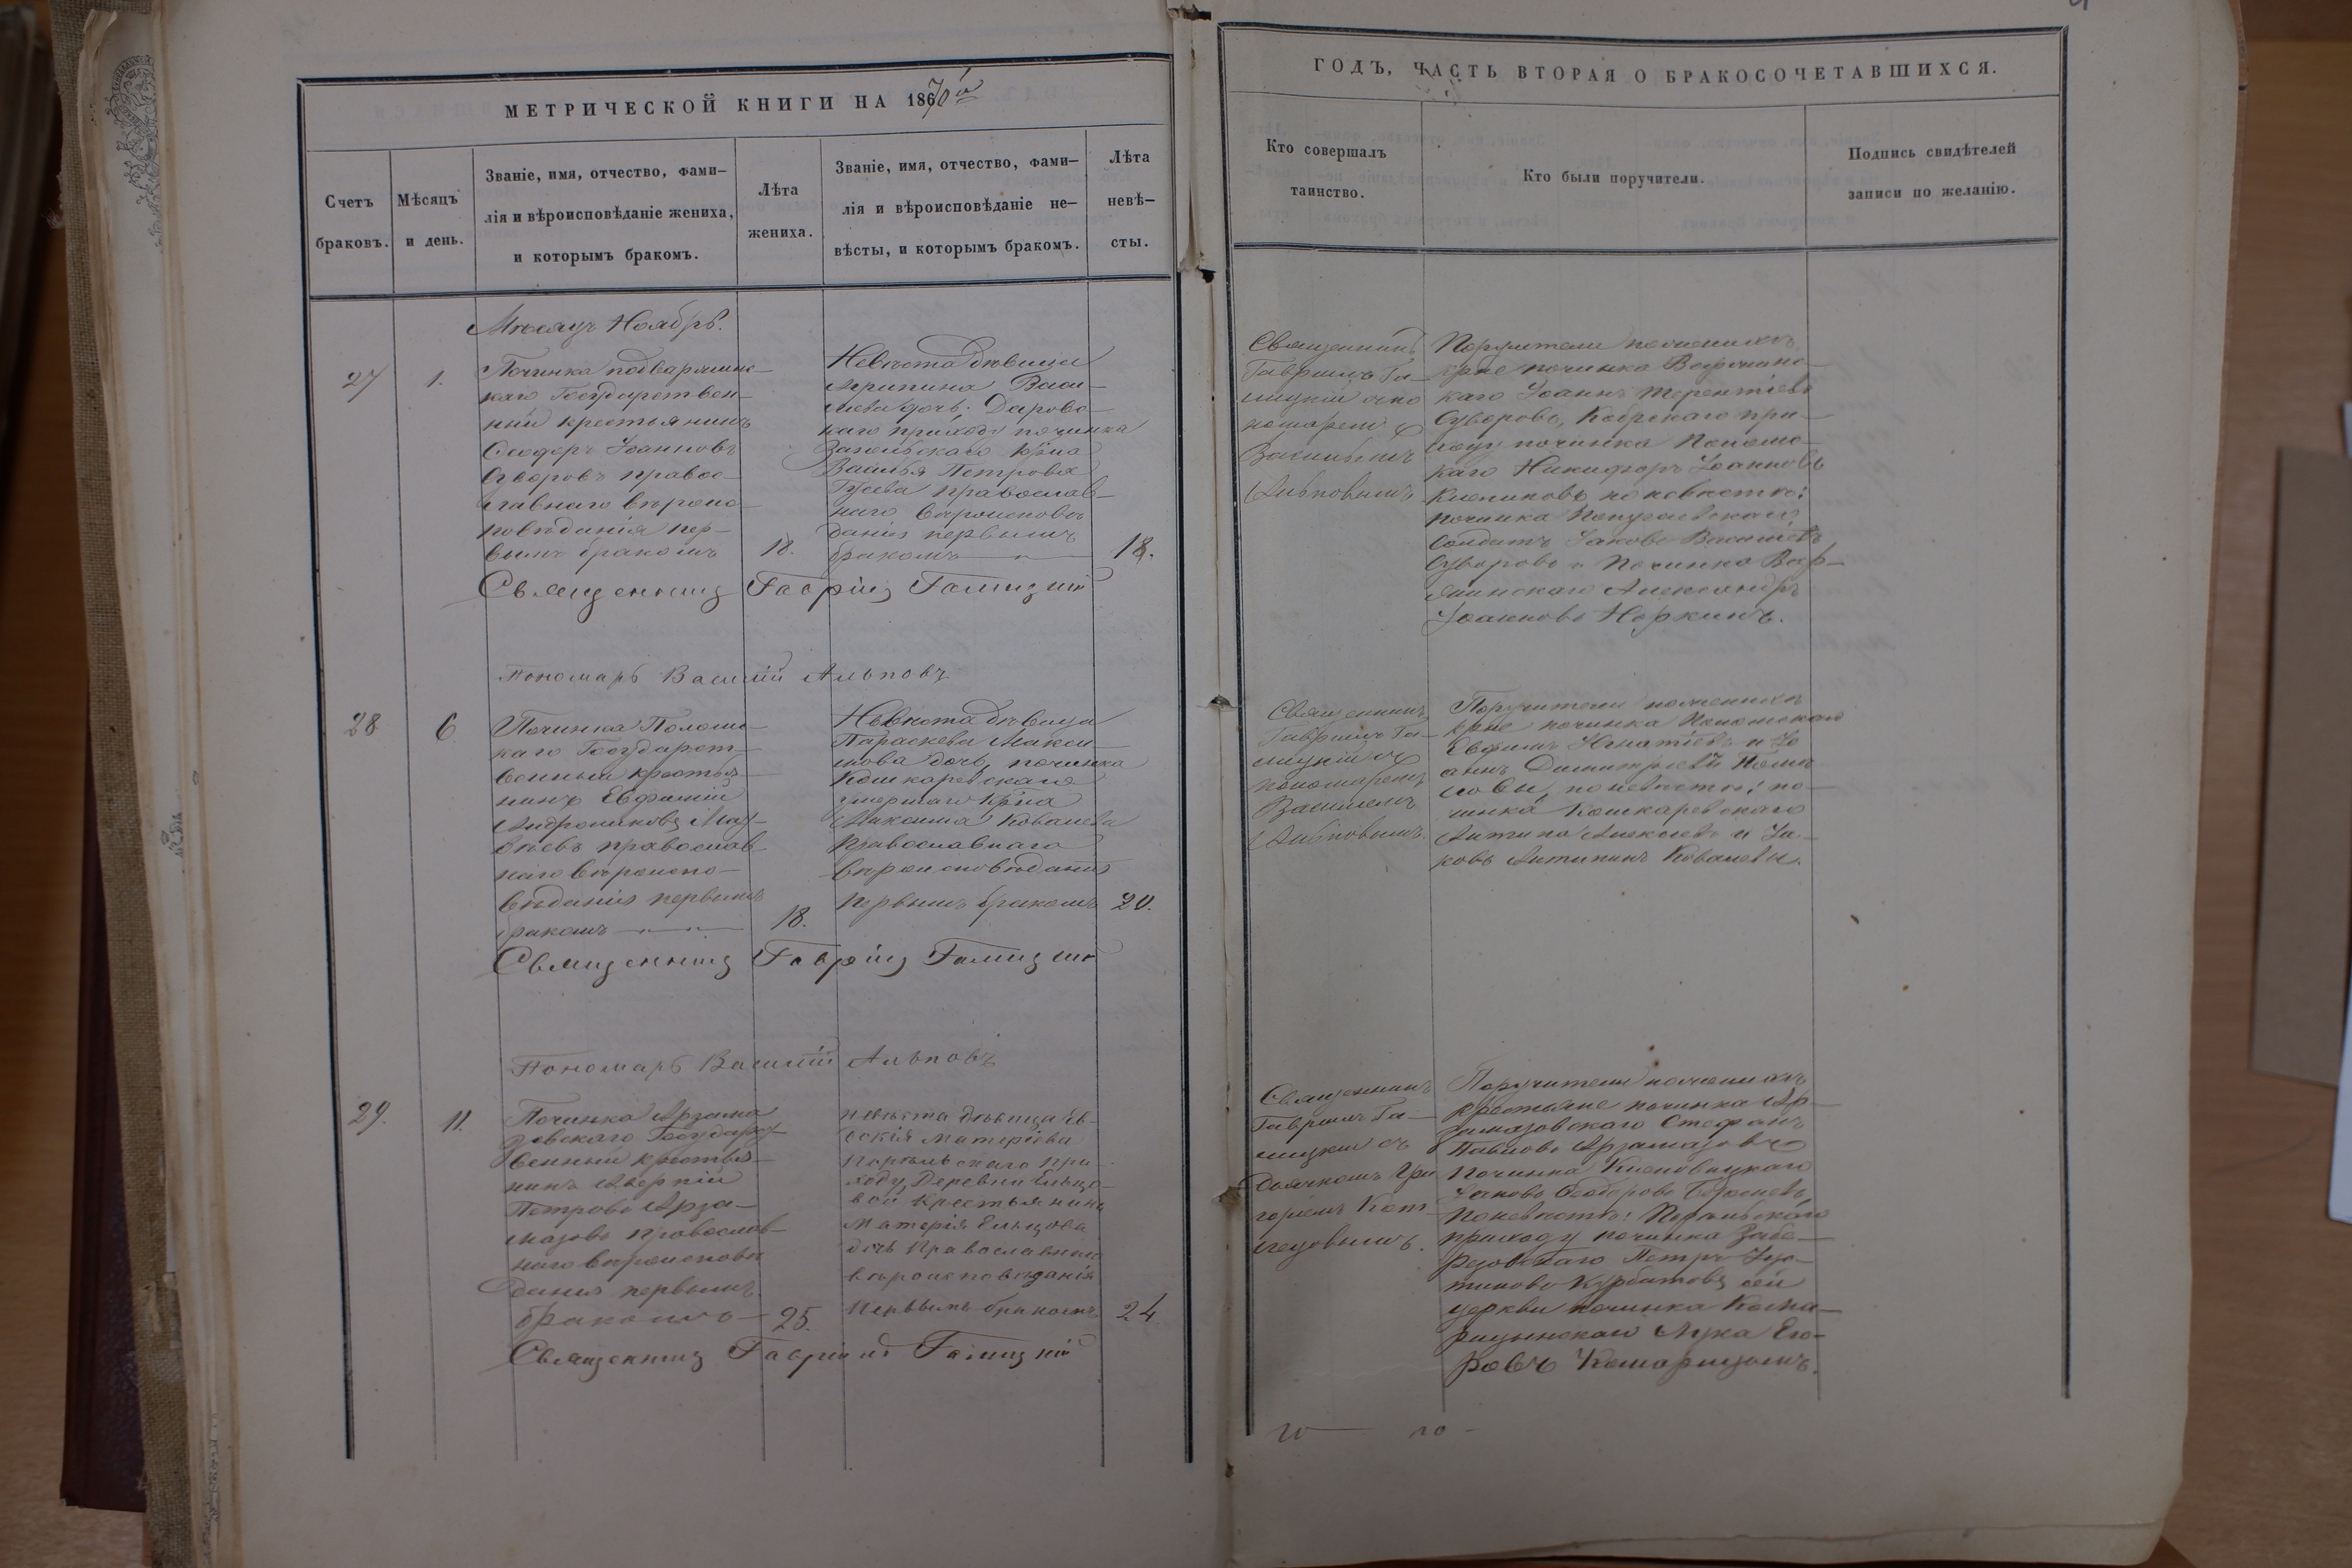 МЕТРИЧЕСКОЙ КНИГИ НА 1870й
Счетъ
браковъ.
Мѣсяцъ
и день.
Званіе, имя, отчество, фами-
лія и вѣроисповѣданіе жениха,
и которымъ бракомъ.
Лѣта
жениха.
Званіе, имя, отчество, фами-
лія и вѣроисповѣданіе не-
вѣсты, и которымъ бракомъ.
Лѣта
невѣ-
сты.
Мѣсяцъ Ноябрь.
27
1.
Починка
каго Государствен-
ный крестьянинъ
Ѳеодоръ Іоанновъ
Суворовъ правос-
лавнаго вѣроис-
повѣданія пер-
вымъ бракомъ
18.
Невѣста дѣвица
Агрипина Васи-
лева дочь, Дарово-
каго приходу починка
крна
Василья Петрова
Гусева православ-
наго вѣроисповѣ
данія первымъ
бракомъ
18.
Священникъ Гавріилъ Галицкій
Пономарь Василій Альповъ
28
6
Починка Поломс-
каго Государст-
венный крестья-
нинъ Евфимій
Андрониковъ
православ-
наго вѣроиспо-
вѣданія первымъ
бракомъ
18.
Невѣста дѣвица
Параскева Макси-
мова дочь, починка
Кошкаревскаго
умершаго крна
Максима Ковалева
православнаго
вѣроисповѣданія
первымъ бракомъ
20.
Священникъ Гавріилъ Галицкій
Пономарь Василій Альповъ
29.
11.
Починка Арзама
зовскаго Государс-
венный крестья-
нинъ Аверкій
Петровъ Арза-
мазовъ православ-
наго вѣроисповѣ
данія первымъ
бракомъ
25.
невѣста дѣвица Ев-
докія Матеріева
приходу, Деревни Ельцо-
вой крестьянина
Матерія Ельцова
дочь Православнаго
вѣроисповѣданія
первымъ бракомъ
24
Священникъ Гавріилъ Галицкій
ГОДЪ, ЧАСТЬ ВТОРАЯ О БРАКОСОЧЕТАВШИХСЯ.
Кто совершалъ
таинство.
Кто были поручители.
Подпись свидѣтелей
записи по желанію.
Священникъ
Гавріилъ Га-
лицкій съ по
номаремъ
Васильемъ
Альповымъ
Поручители по женихѣ
крне починка
каго Іоаннъ Терентіевъ
Суворовъ, Кобрскаго при-
ходу починка Поломс-
каго Никифоръ Іоанновъ
по невѣстѣ:
починка
Солдатъ Іаковъ Васильевъ
Суворовъ и Починка Вар-
Александръ
Іоанновъ Норкинъ.
Священникъ
Гавріилъ Га-
лицкій съ
пономаремъ
Василіемъ
Альповымъ.
Поручители по женихѣ
крне починка Поломскаго
Евфимъ Игнатіевъ и Іо
аннъ Димитріевъ
по невѣстѣ: по-
чинка Кошкаревскаго
Антипа Алексѣевъ и Іа-
ковъ Антипинъ Ковалевы.
Священникъ
Гавріилъ Га-
лицкій съ
дьячкомъ Гри
горіемъ
Поручители по женихѣ
крестьяне починка Ар-
замазовскаго Стефанъ
Павловъ Арзамазовъ
Починка
Іаковъ Ѳеодоровъ
По невѣстѣ:
приходу починка
Петръ
Курбатовъ сей
церкви починка Кома-
рицынскаго Лука Его-
ровъ Комарицынъ.